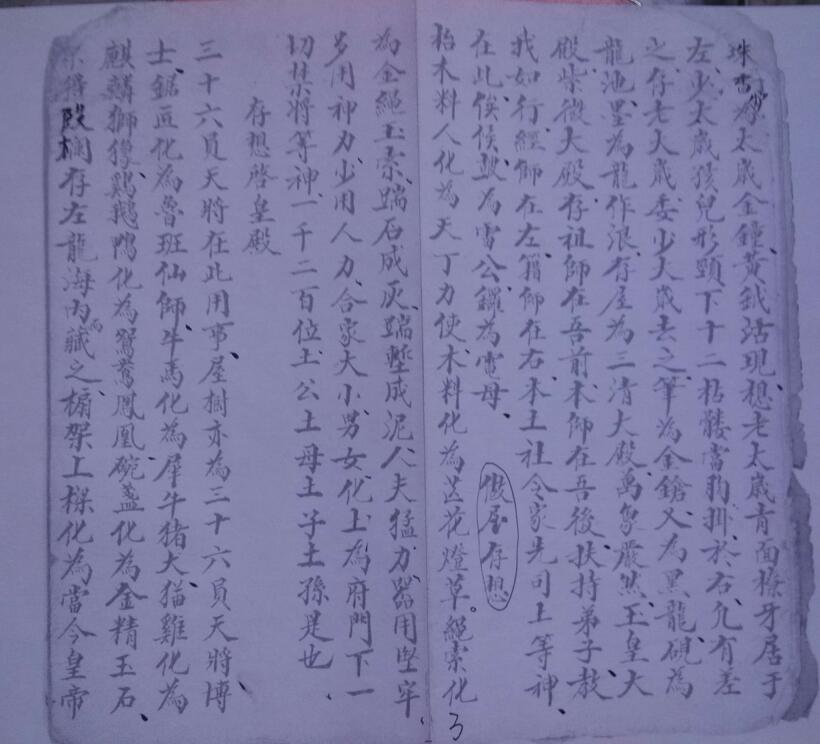 太歲金鐘黃鉞沽現想老太歲青面獠牙居于
左少太歲孩兒形頸下十二枯髏當胸掛於右凡有差
之存老太歲委少太歲去之筆為金鎗又為黑龍硯為
龍池墨為龍作浪存屋為三清大殿萬象嚴然玉皇大
殿紫微大殿存祖師在吾前本師在吾後扶持弟子教
我如行經師在左籍師在右本土社令家先司上等神
在此俟候鼓為雷公鑼為電母
做屋存想
抬木料人化為天丁力使木料化為芯花燈草繩索化
為金繩玉索踹石成灰踹塹成泥人夫猛力器用堅牢
多用神力少用人力合家大小男女化上為府門下一
切禁將等神一千二百位土公土母土子土孫是也
存想啓皇殿
三十六員天將在此用事屋樹亦為三十六員天將博
士鋸匠化為魯班仙師牛馬化為犀牛猪犬猫雞化為
麒麟獅𤢪雞鵝鴨化為鴛鴦鳳凰碗盞化為金精玉石
得殹欄存左龍海內藏之梯架上樑化為當今皇帝
3